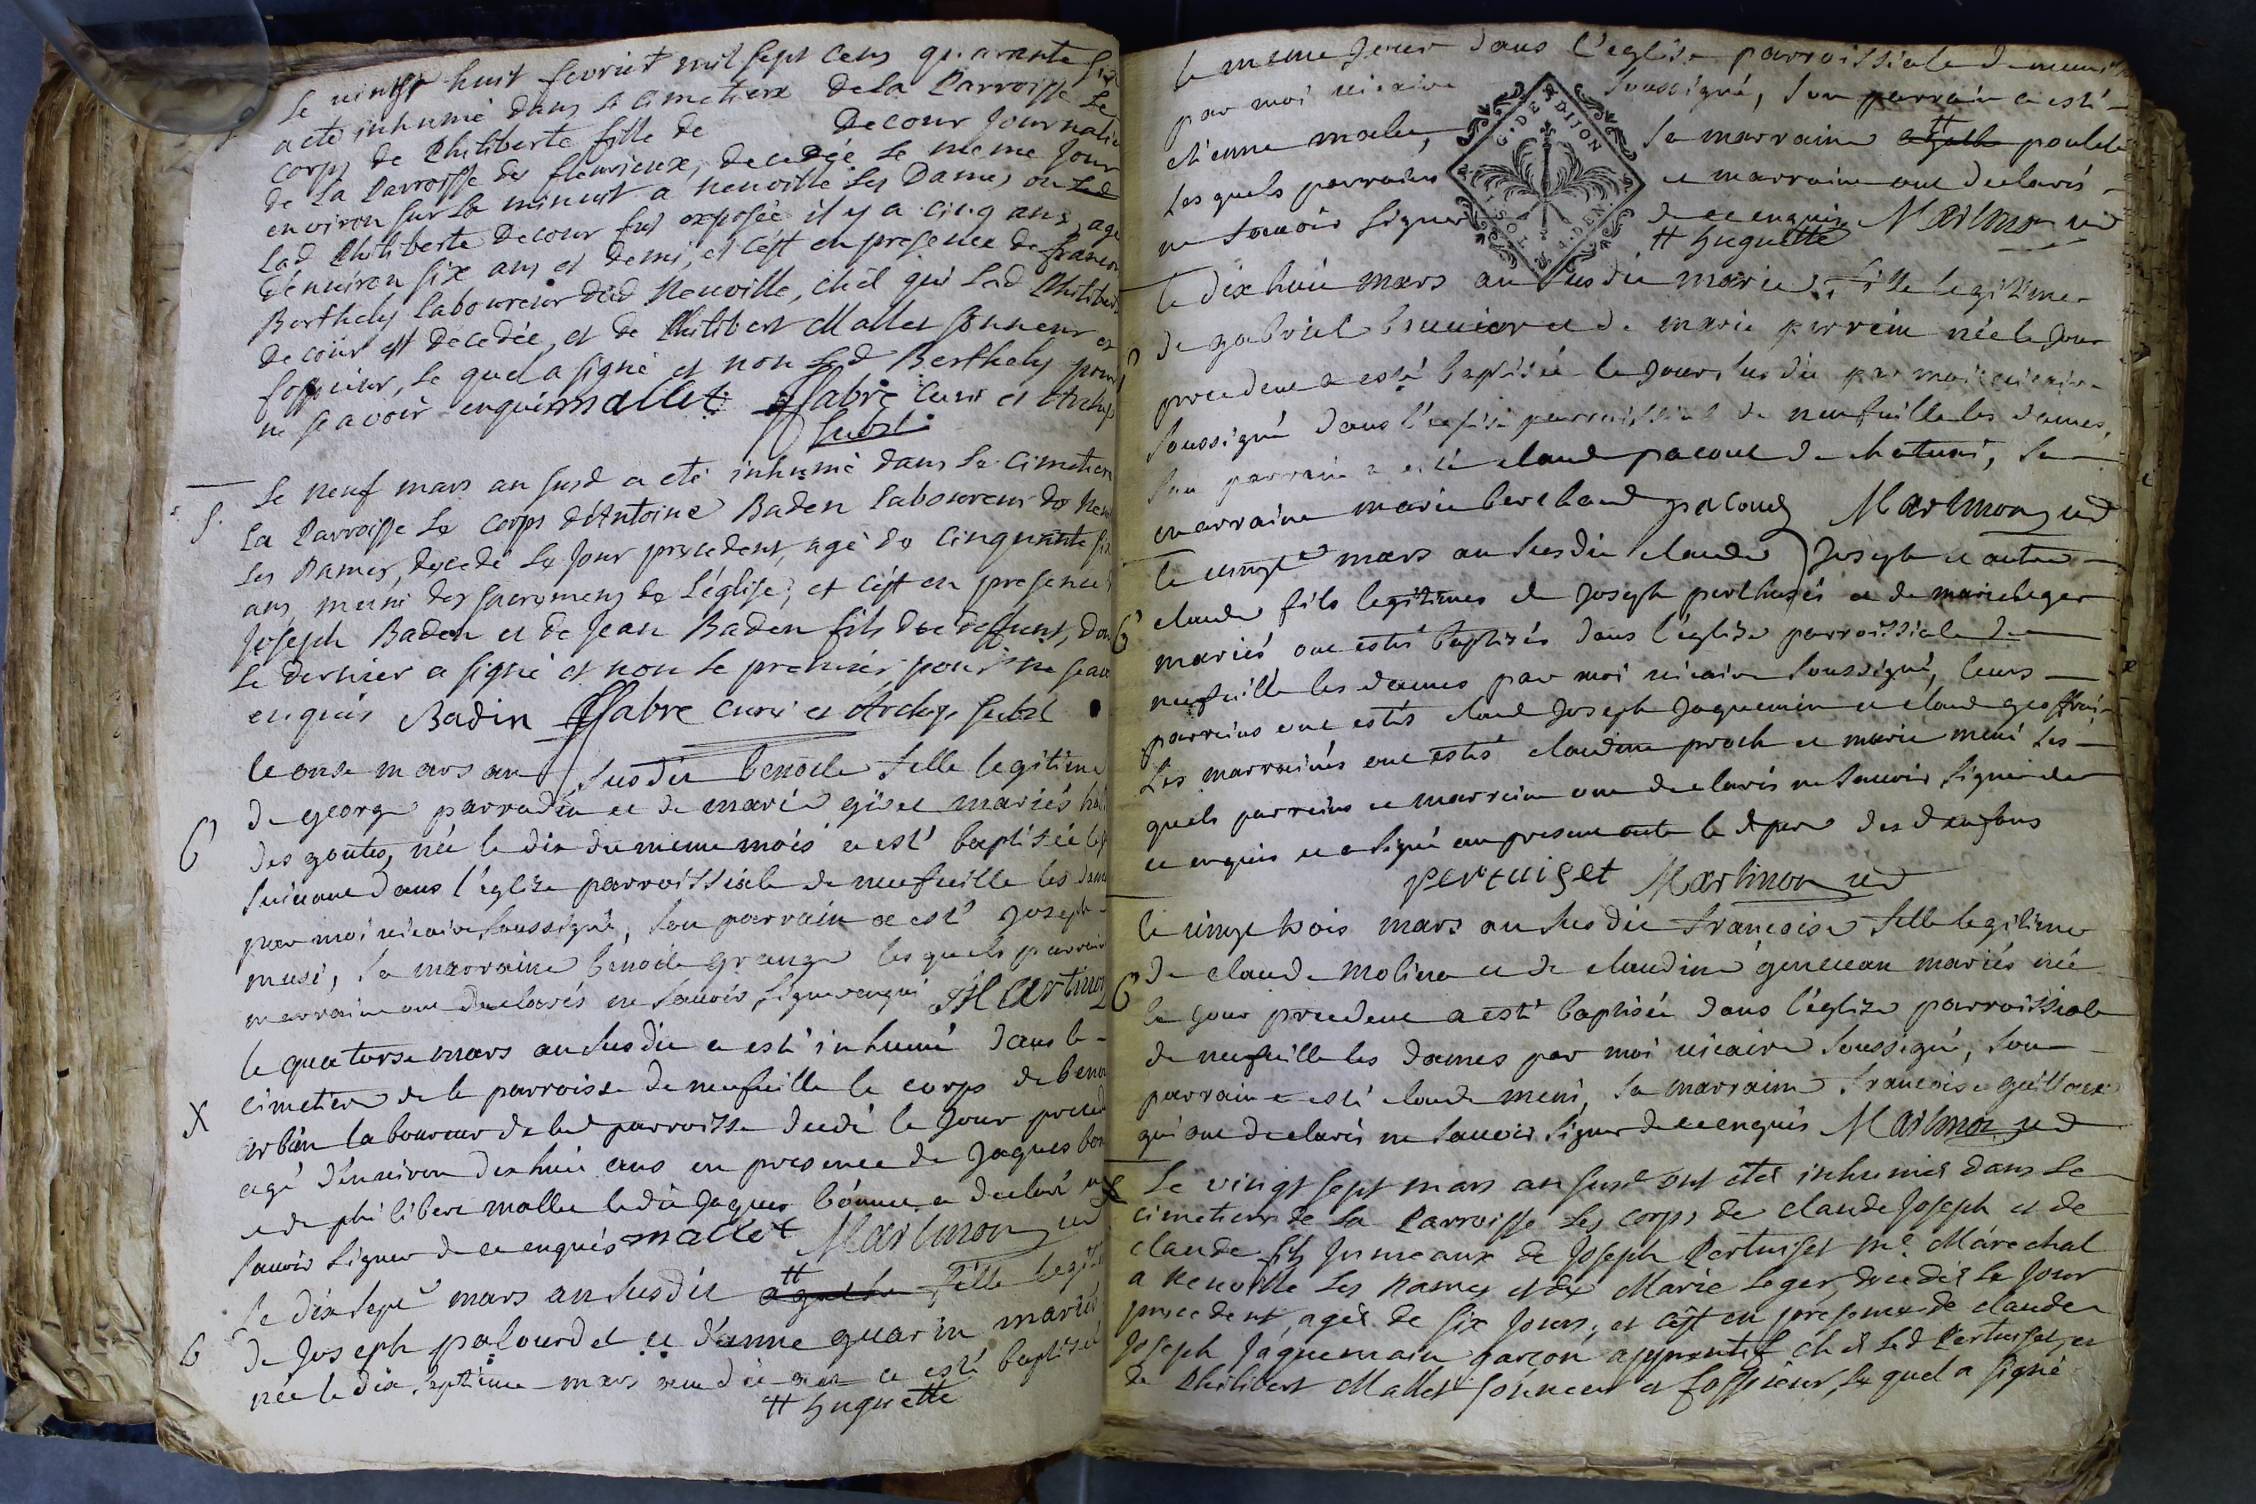 Le vingt huit fevrier mil sept cens quarante six
a eté inhumé dans le cimetiere de la Parroisse Le
corps de Philiberte fille de Decour Journalier
de La Parroisse de fleurieux, decedée Le meme Jour
environ sur La minuit a Neuville Les Dames ou Lad
Lad Philiberte Decour fut exposée il y a cinq ans, agé
d'environ six ans et demi, et c'est en presence de francois
Berthely Laboureur dud Neuville, chés qui Lad Philiberte
Decour est decedée, et de Philibert Mallet sonneur et
fossieur, Le quel a signé et non Led Berthely pour
ne scavoir enquis mallet ffabre Curé et Archip
subst
S. Le neuf mars an susd a eté inhumé dans Le Cimetiere
La Parroisse Le Corps d'Antoine Baden Laboureur de Neu
Les Dames, decedé Le Jour precedent, agé de cinquante six
ans, muni des sacremens de L'église; et c'est en presence
Joseph Baden et de Jean Baden fils du deffunt, dont
Le dernier a signé et non Le premier pour ne scavoir
enquis Badin ffabre Curé et Archip subst
le onse mars an susdit benoite fille legitime
de george parradin et de marie givet mariés
B des goutes, née le dix du meme mois a esté baptisée le
suivant dans l'eglize parroissiale de neufuille les dames
par moi vicaire soussigné, son parrain a esté Joseph
musi, sa marraine benoite grange les quels parrain
marraine ont declarés ne savoir signer enquis Martinon
le quatorse mars an susdit a esté inhumé dans le
X cimetiere de la parroisse de neufuille le corps de benoi
arbin laboureur de lad parroisse decedé le Jour preced
agé d'environ dix huit ans en presence de Jaques bon
et de philibert mallet ledit Jaques bonnet a declaré ne
savoir signer de ce enquis mallet Martinon vic
Le dix sept mars an susdit # agathe fille legit
B de Joseph palourdet et d'anne guarin mariés
née le dix septieme mars a esté baptisée
# huguette
le meme Jour dans l'eglise parroissiale de neuf
par moi vicaire soussigné, son parrain a esté
etienne malen, sa marraine # agathe poulet
Les quels parrains et marraine ont declarés
ne savoir signer de ce enquis Martinon vic
# huguette
G. DE DIJON
le dix huit mars an susdit marie, fille legitime
de gabriel brunier et de marie perrein née le Jour
precedent a esté baptisée le Jour susdit par moi vicaire
soussigné dans l'eglise parroissiale de neufuille les dames,
son parrain a esté claude pacout de chatuni, sa
marraine marie berchaud pacoud Martinon vic
le vingt mars an susdit claude Joseph et autre
B claude fils legitimes de Joseph perthuisés et de marie leger
mariés ont estés baptisés dans l'églize parroissiale de
neufuille les dames par moi vicaire soussigné, leurs
parreins ont estés claud Joseph Jaquemin et claud geoffrai
Les marraines ont estés claudine proch et marie meni Les
quels parreins et marreine ont declarés ne savoir signer de
ce enquis et a signé au present acte le d pere des d enfans
pertuiset Martinon vic
le vingt trois mars an susdit francoise fille legitime
de claude molina et de claudine geneveau mariés née
B le Jour precedent a esté baptisée dans l'églize parroissiale
de neufuille les dames par moi vicaire soussigné, son
parrain a esté claude meni, sa marraine francoise guillaux
qui ont declarés ne savoir signer de ce enquis Martinon vic
Le vingt sept mars an susd ont etés inhumés dans Le
cimetiere de La Parroisse Les corps de claude Joseph et de
claude fils Jumeaux de Joseph Pertuiset me Maréchal
a Neuville Les Dames et de Marie Leger, decedés Le Jour
precedent, agés de six Jours, et c'est en presence de claude
Joseph Jaquemain garçon apprentif chés Led Pertuiset, et
de Philibert Mallet sonneur et fossieur, Le quel a signé